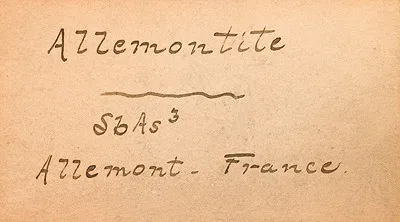 Allemontite
SbAs³
Allemont - France.